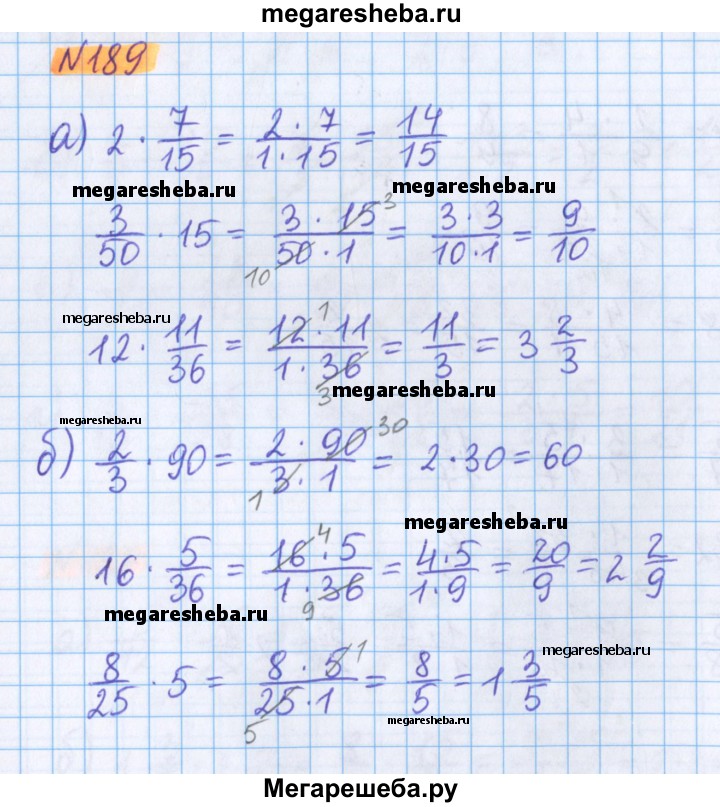 megaresheba.ru
№189
а) 2 · 7/15 = 2 · 7/1 · 15 = 14/15
megaresheba.ru megaresheba.ru
3/50 · 15 = 3 · 15 3/50 · 1 10 = 3 · 3/10 · 1 = 9/10
megaresheba.ru
12 · 11/36 = 12 1 · 11/1 · 36 3 = 11/3 = 3 2/3
megaresheba.ru
megaresheba.ru
б) 2/3 · 90 = 2 · 90 30/3 · 1 1 = 2 · 30 = 60
megaresheba.ru
16 · 5/36 = 16 4 · 5/1 · 36 9 = 4 · 5/1 · 9 = 20/9 = 2 2/9
megaresheba.ru
megaresheba.ru
8/25 · 5 = 8 · 5 1/25 · 1 5 = 8/5 = 1 3/5
megaresheba.ru
Мегарешеба.ру